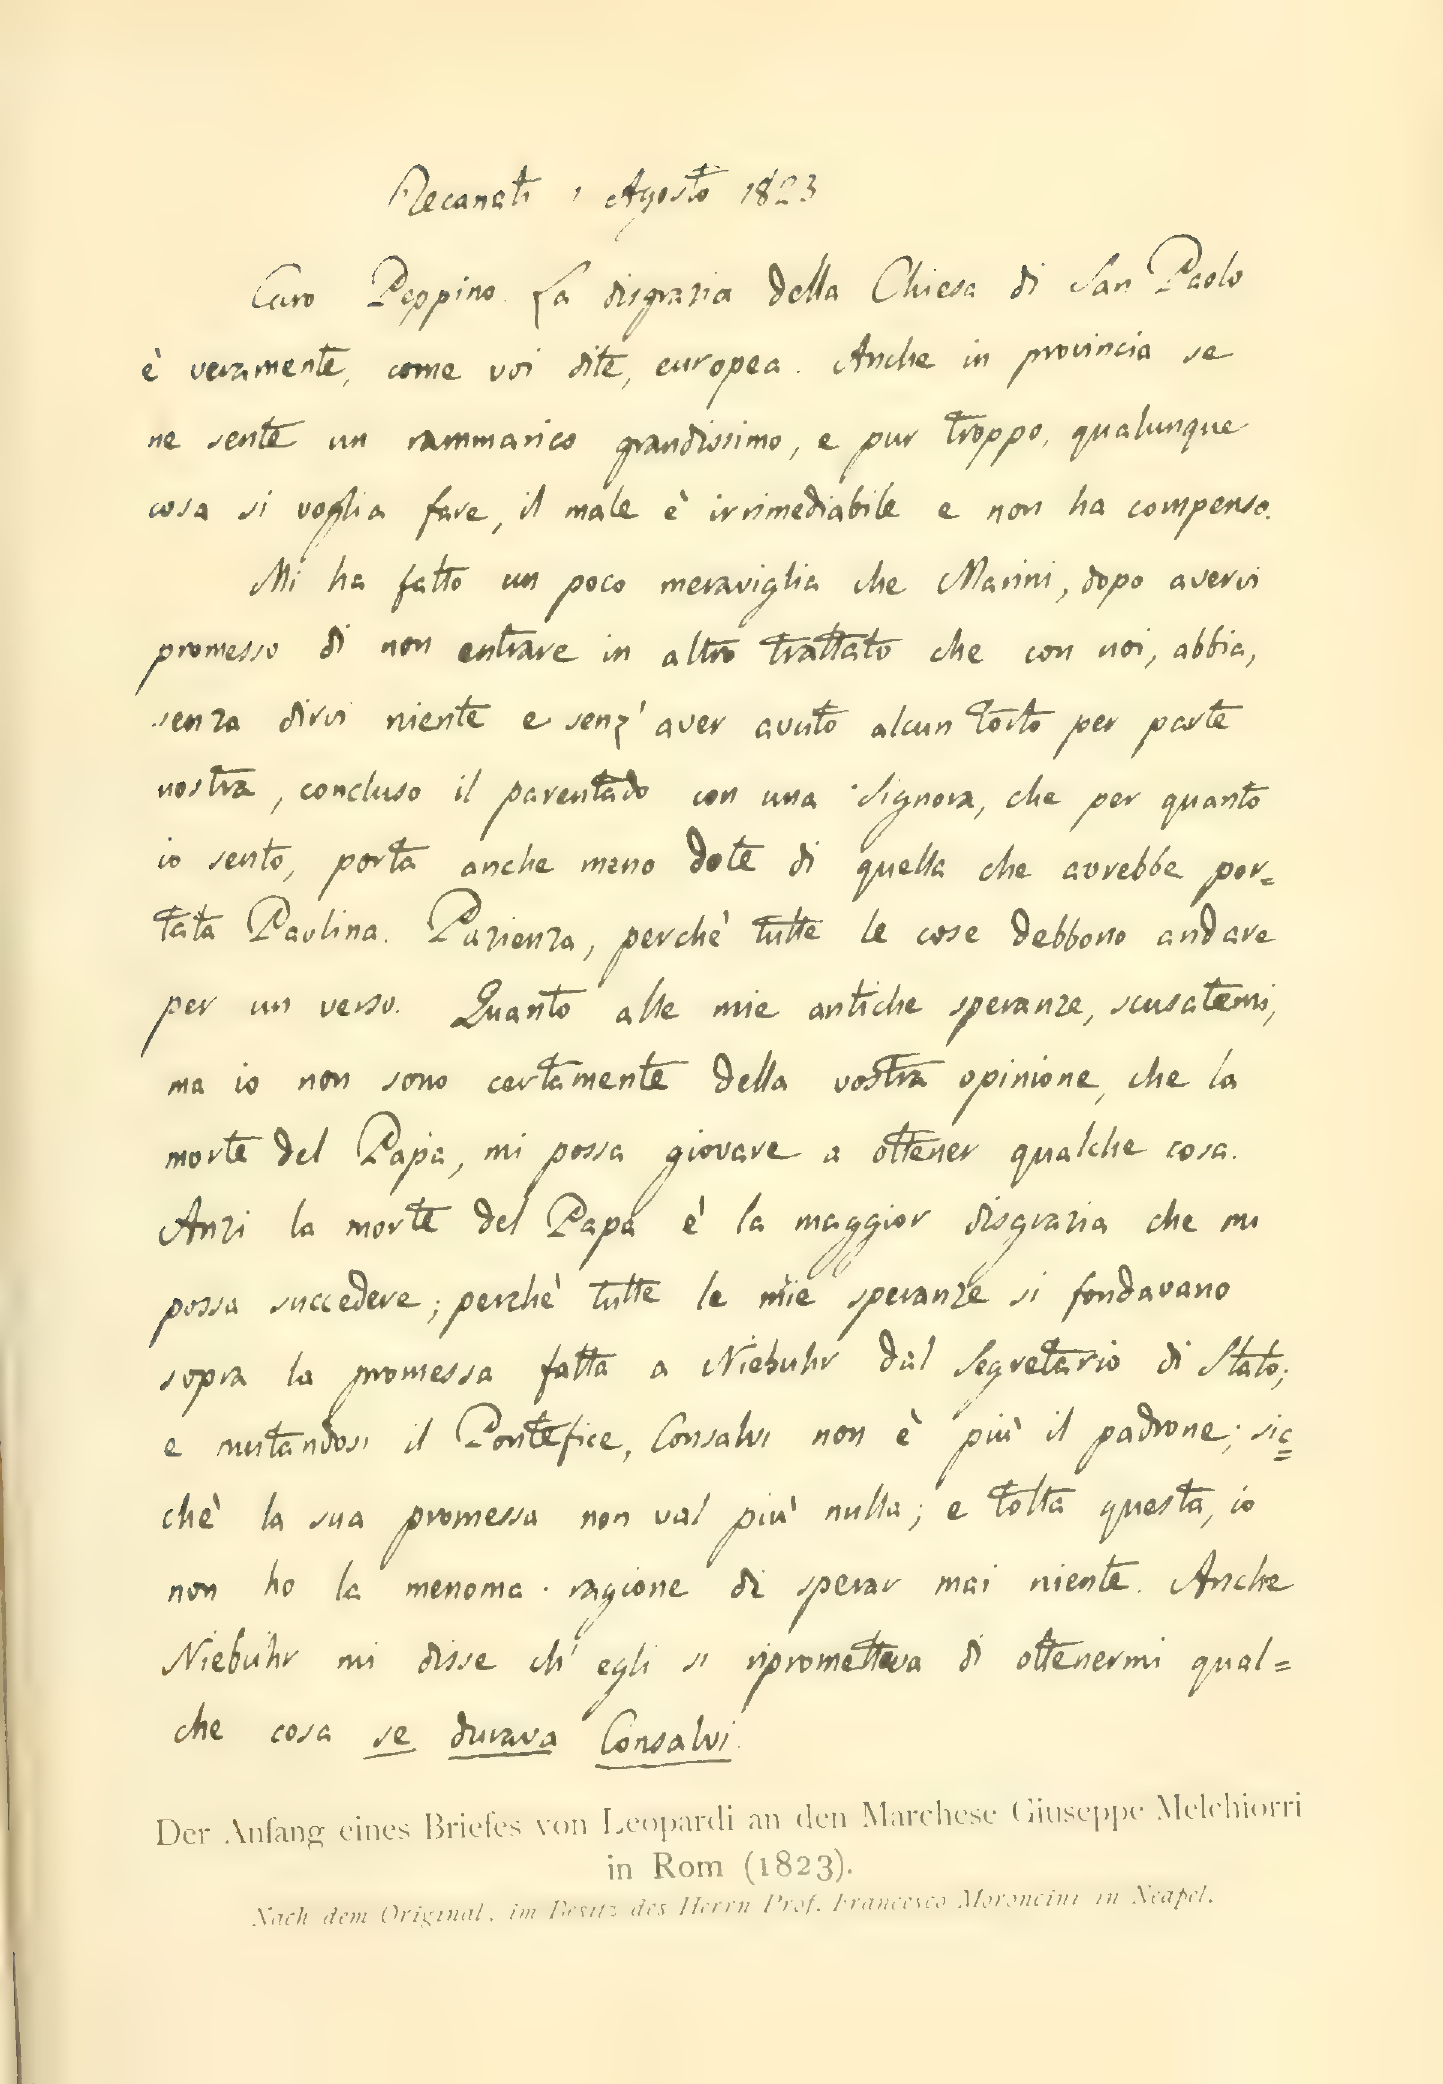 Recanati 1 Agosto 1823
Caro Peppino. La disgrazia della Chiesa di San Paolo
è veramente, come voi dite, europea. Anche in provincia se
ne sente un rammarico grandissimo, e pur troppo, qualunque
cosa si voglia fare, il male è irrimediabile e non ha compenso.
Mi ha fatto un poco meraviglia che Marini, dopo avervi
promesso di non entrare in altro trattato che con noi, abbia,
senza dirvi niente e senz' aver avuto alcun torto per parte
nostra, concluso il parentado con una Signora, che per quanto
io sento, porta anche meno dote di quella che avrebbe por=
tata Paolina. Pazienza, perchè tutte le cose debbono andare
per un verso. Quanto alle mie antiche speranze, scusatemi,
ma io non sono certamente della vostra opinione, che la
morte del Papa, mi possa giovare a ottener qualche cosa.
Anzi la morte del Papa è la maggior disgrazia che mi
possa succedere; perchè tutte le mie speranze si fondavano
sopra la promessa fatta a Niebuhr dal Segretario di Stato;
e mutandosi il Pontefice, Consalvi non è più il padrone; sic=
chè la sua promessa non val più nulla; e tolta questa, io
non ho la menoma ragione di sperar mai niente. Anche
Niebuhr mi disse ch' egli si riprometteva di ottenermi qual=
che cosa se durava Consalvi.
Der Anfang eines Briefes von Leopardi an den Marchese Giuseppe Melchiorri
in Rom (1823).
Nach dem Original, im Besitz des Herrn Prof. Francesco Moroncini in Neapel.